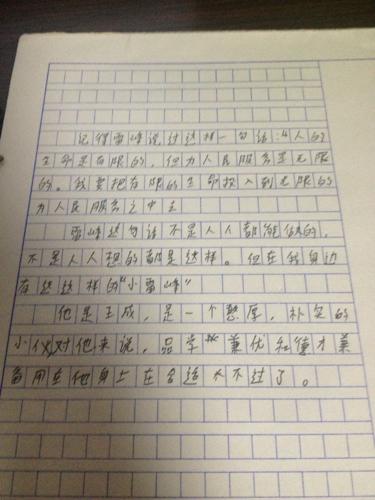 记得雷峰说过这样一句话:“人的
生命是有限的,但为人民服务是无限
的。我要把有限的生命投入到无限的
为人民服务之中去
雷峰这句话不是人人都能做的,
不是人人想的都是这样。但在我身边
有些这样的“小雷峰”
他是王成,是一个憨厚,朴实的
小伙对他来说,品学兼优和德才兼
备用在他身上在合适大不过了。